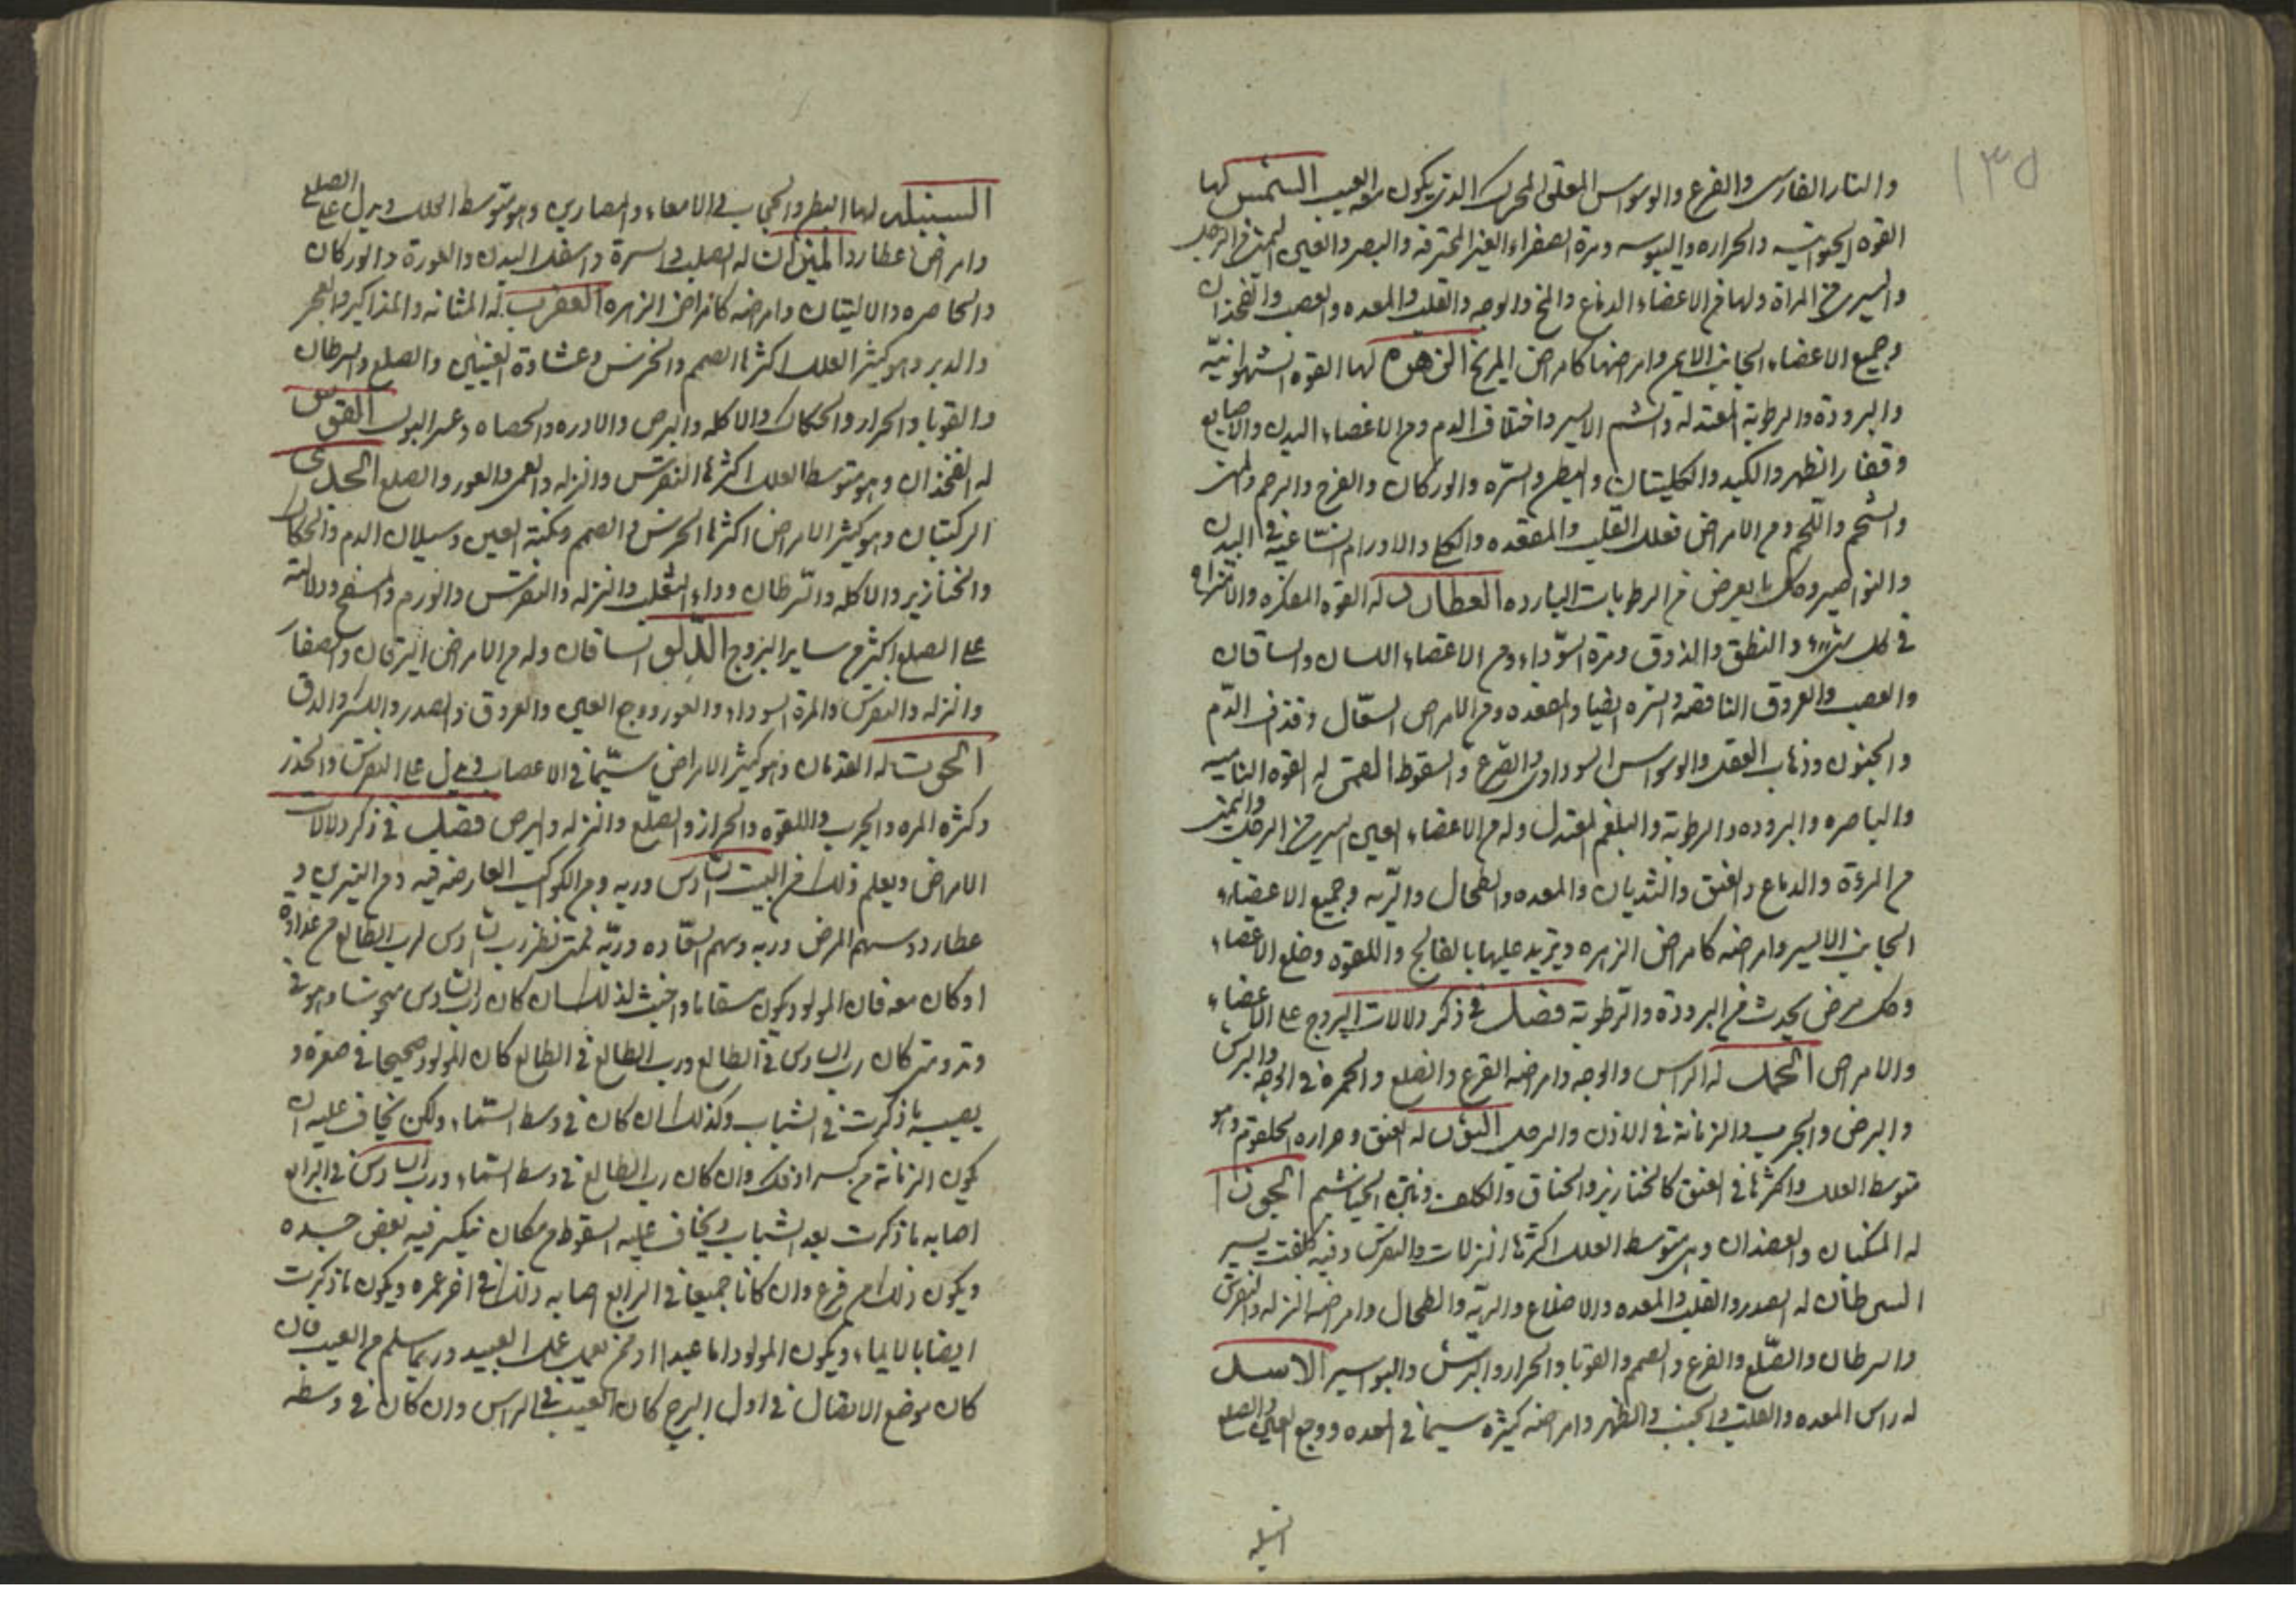 ١٣٥
والنار الفارسى والفزع والوسواس المقلق المحرك الذى يكون معه العيب الشمس لها
القوه الحيوانيه والحراره واليبوسه ومرة الصفراء الغير المحترقه والبصر والعين اليمنى من الرجل
واليسرى من المراة ولها من الاعضاء الدماغ والمخ والوجه والقلب والمعده والعصب والفخذان
وجميع الاعضاء الجانب الايمن وامراضها كامراض المريخ الزهره لها القوه الشهوانيّه
والبرودة والرطوبة المعتدلة والشم الايسر واختلاف الدم ومن الاعضاء اليدان والاصابع
وقفار الظهر والكبد والكليتان والبطن والسرّه والوركان والفرج والرحم والمنى
والشحم واللحم ومن الامراض فعلل القلب والمقعده والكلى والاورام الساعية فى البدن
والنواصير وكل ما يعرض من الرطوبات البارده العطارد له القوه المفكره والاشتراك
فى كل شىء والنطق والذوق ومرة السوّداء ومن الاعضاء اللسان والساقان
والعصب والعروق والسره ايضا والمقعده ومن الامراض السعّال وقذف الدّم
والجنون وذهاب العقل والوسواس السوداوى والصرع والسقوط القمر له القوه الناميه
والباصره والبروده والرطوبة والبلغم المعتدل وله من الاعضاء العين اليسرى من الرجل واليمنى
من المرؤة والدماغ والعنق والثديان والمعده والطحال والرّيه وجميع الاعضاء
الجانب الايسر وامراضه كامراض الزهره ويزيد عليها بالفالج واللقوه وخلع الاعضاء
وكل مرض يحدث من البرودة والرّطوبة فصل فى ذكر دلالات البروج على الاعضاء
والامراض الحمل له الراس والوجه وامراضه القرع والصلع والحمره فى الوجه والبرش
والبرص والجرب والزمانة فى الاذن والرجل الثور له العنق وحراره الحلقوم وهو
متوسط العلل واكثرها فى العنق كالخنازير والخناق والكلف ونتن الخياشيم الجوزا
له المنكبان والعضدان وهى متوسط العلل اكثرها النزلات والنقرس وفيه كلفت يسير
السرطان له الصدر والقلب والمعده والاضلاع والريّه والطحال وامراضه النزله والنقرس
والسرطان والصّلع والقرع والصمم والقوبا والحرار والبرش والبواسير الاسد
له راس المعده والقلب والجنب والظهر وامراضه كثيره سيما فى المعده ووجع العين والصلع
السنبله
السنبله لها البطن والحجاب والامعاء والمصارين وهو متوسط العلل ويدل على الصلع
وامراض عطارد الميزان له الصلب والسرة واسفل البدن والعورة والوركان
والخاصره والاليتان وامراضه كامراض الزهره العقرب له المثانه والمذاكير والعجز
والدبر وهو كثير العلل اكثرها الصمم والخرس وغشاوة العينين والصلع والسرطان
والقوبا والحرار والحكاك والاكله والبرص والادره والحصاه وعسر البول القوس
له الفخذان وهو متوسط العلل اكثرها النقرس والنزله والعمى والعور والصلع الجدى
الركبتان وهو كثير الامراض اكثرها الخرس والصمم وكمنة العين وسيلان الدم والحكاك
والخنازير والاكله والسّرطان وداء الثعلب والنزله والنقرس والورم ودلالته
على الصلع اكثر من ساير البروج الدلو الساقان وله من الامراض اليرقان والصفار
والنزله والنقرس والمرة السوداء والعور ووجع العين والعروق والصدر والدق
الحوت له القدمان وهو كثير الامراض سيّما فى الاعصاب ويدل على النقرس والخدر
وكثره المره والجرب واللقوه والحرار والصلع والنزله والبرص فصل فى ذكر دلالات
الامراض ويعلم ذلك من البيت السادس وربه ومن الكواكب العارضه فيه ومن النيرين و
عطارد وسهم المرض وربه وسهم السعّاده وربّه فمتى نظر رب السادس لرب الطالع من عداوة
او كان معه فان المولود يكون مسقاما واخبث لذلك ان كان رب السادس منحوسا وهو فى
وتد ومتى كان رب السادس فى الطالع ورب الطالع فى الطالع كان المولود صحيحا فى صغره و
يصيبه ما ذكرت فى الشباب وكذلك ان كان فى وسط السّماء ولكن يخاف عليه ان
يكون الزمانة من كسر او فك وان كان رب الطالع فى وسط السّماء ورب السادس فى الرابع
اصابه ما ذكرت بعد الشباب ويخاف عليه السقوط من مكان ينكسر فيه بعض جسده
ويكون ذلك من فزع وان كانا جميعا فى الرابع اصابه ذلك فى اخر عمره ويكون ما ذكرت
ايضا ويكون المولود اما عبدا او ممن يعمل عمل العبيد وربما سلم من العيب فان
كان موضع الاتصال فى اول البرج كان العيب فى الراس وان كان فى وسطه